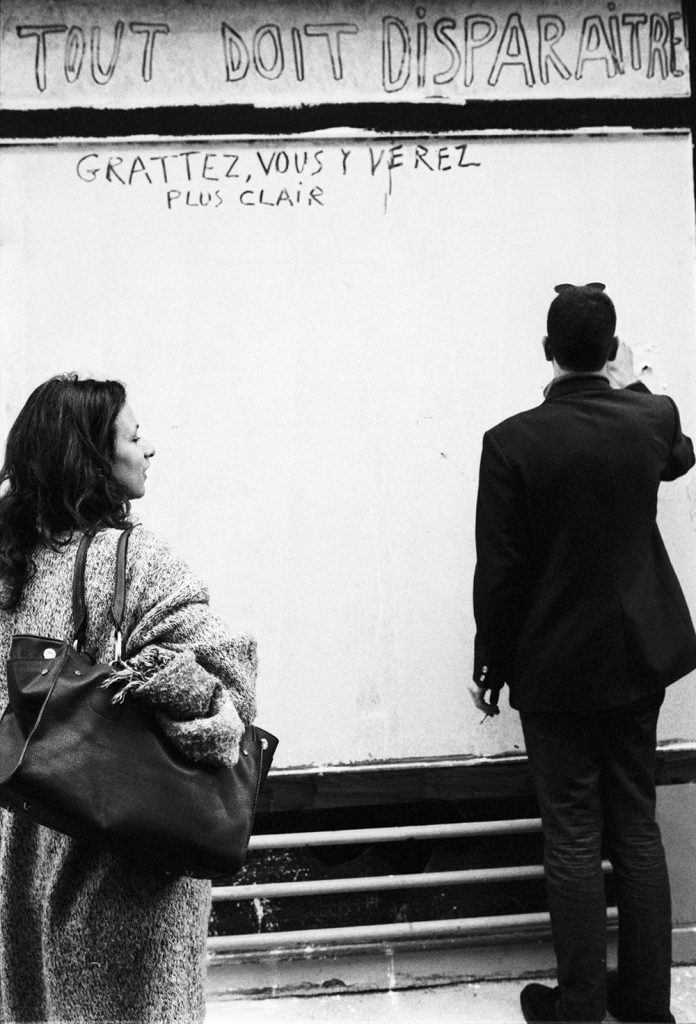 TOUT DOIT DISPARAiTRE
GRATTEZ, VOUS Y VEREZ
PLUS CLAiR